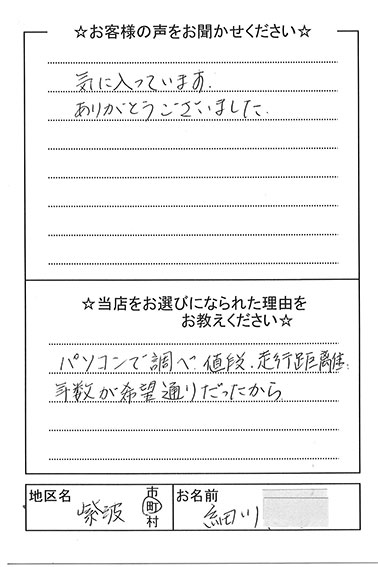 ☆お客様の声をお聞かせください☆
気に入っています.
ありがとうございました.
☆当店をお選びになられた理由を
お教えください☆
パソコンで調べ 値段.走行距離.
年数が希望通りだったから
地区名 紫波 市町村 お名前 細川